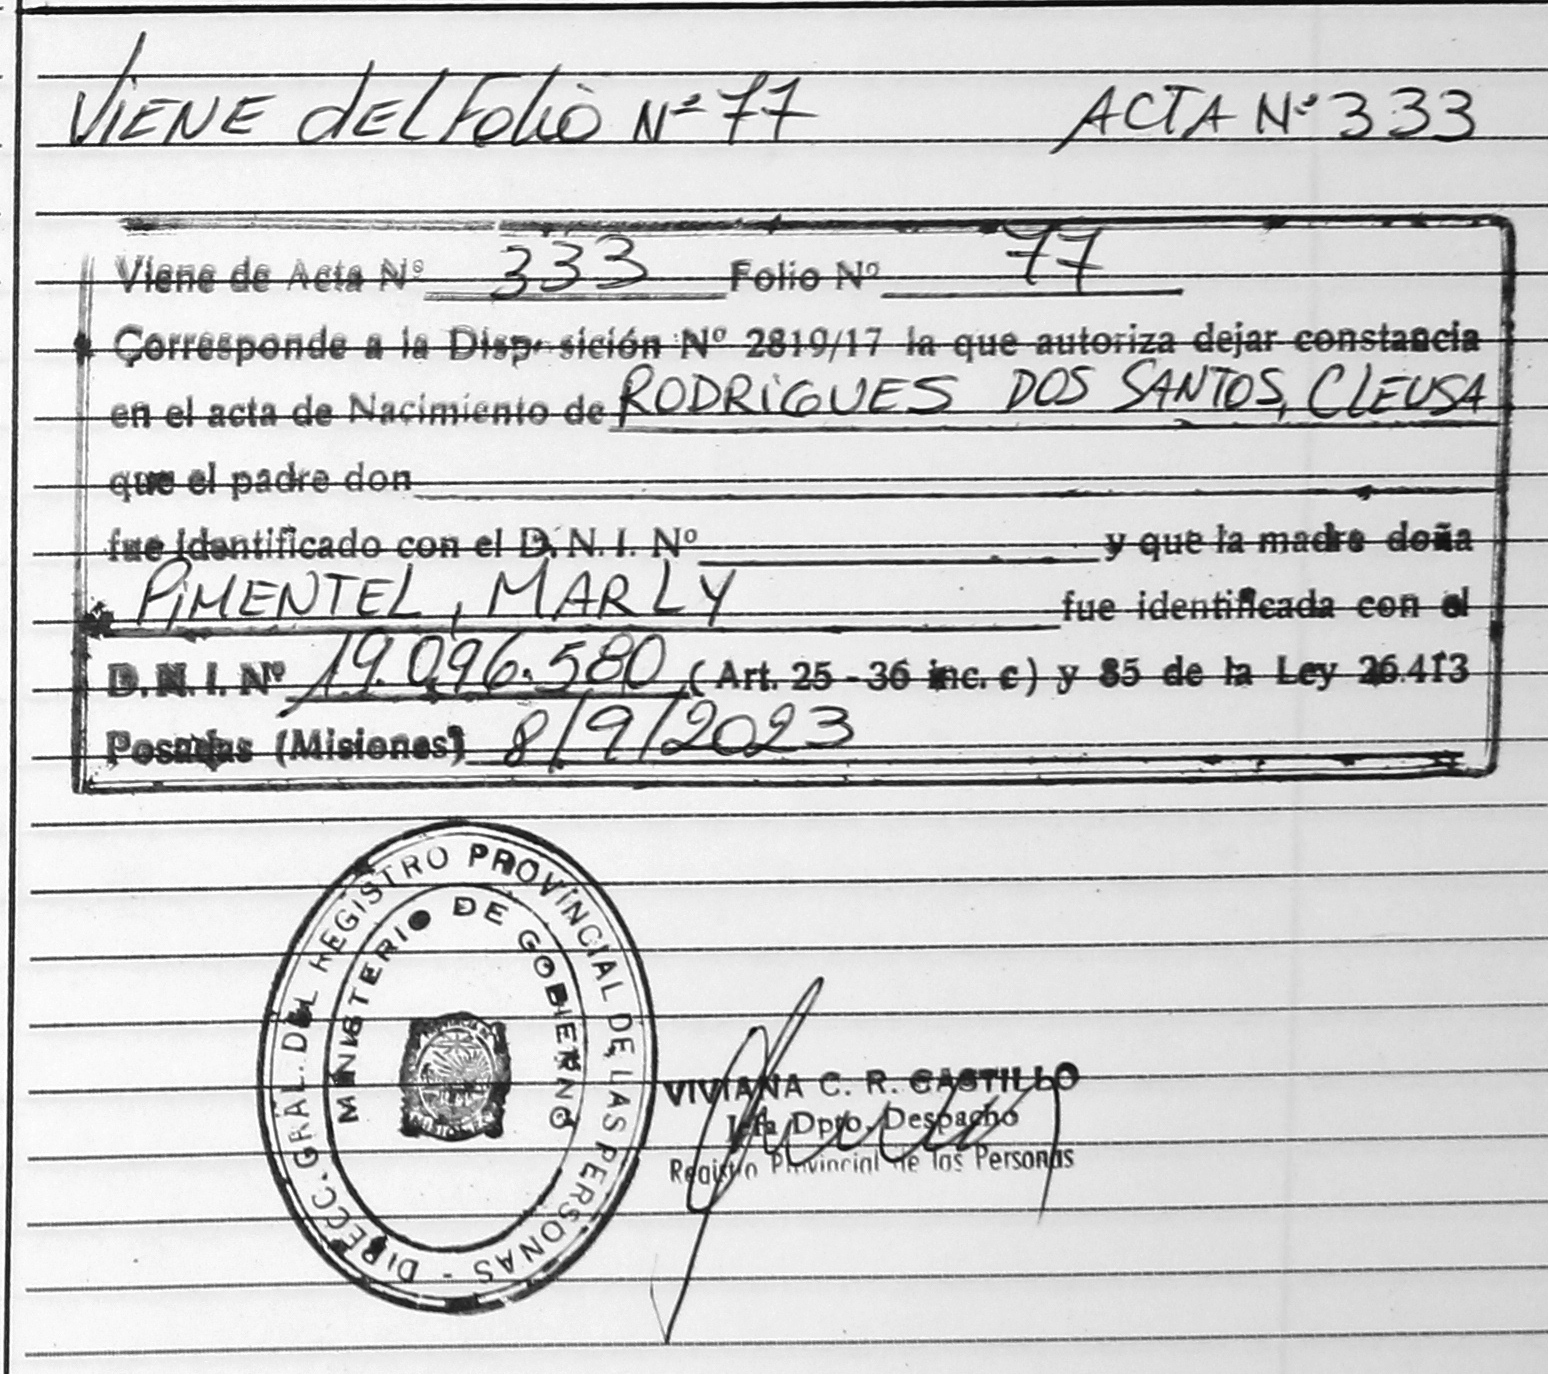 VIENE DEL Folio Nº 77 ACTA Nº 333
Viene de Acta Nº 333 Folio Nº 77
Corresponde a la Disposición Nº 2819/17 la que autoriza dejar constancia
en el acta de Nacimiento de RODRIGUES DOS SANTOS, CLEUSA
que el padre don
fue identificado con el D.N.I. Nº y que la madre doña
PIMENTEL, MARLY fue identificada con el
D.N.I. Nº 19.096.580 (Art. 25 - 36 inc. c) y 85 de la Ley 26.413
Posadas (Misiones) 8/9/2023
DIRECC. GRAL. DEL REGISTRO PROVINCIAL DE LAS PERSONAS -
MINISTERIO DE GOBIERNO
MISIONES
VIVIANA C. R. CASTILLO
Jefa Dpto. Despacho
Registro Provincial de las Personas